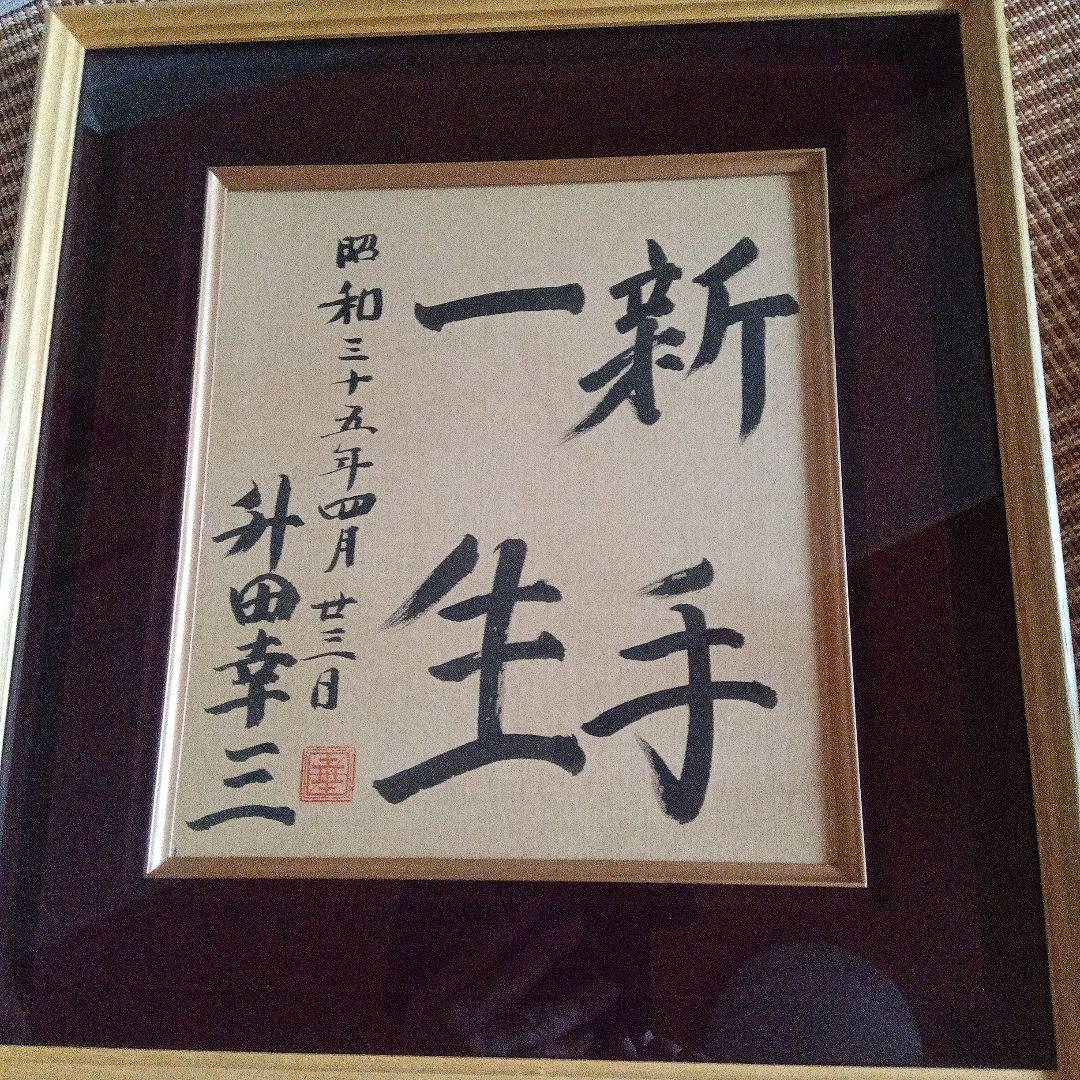 新手
一生
昭和三十五年四月廿三日
升田幸三
幸